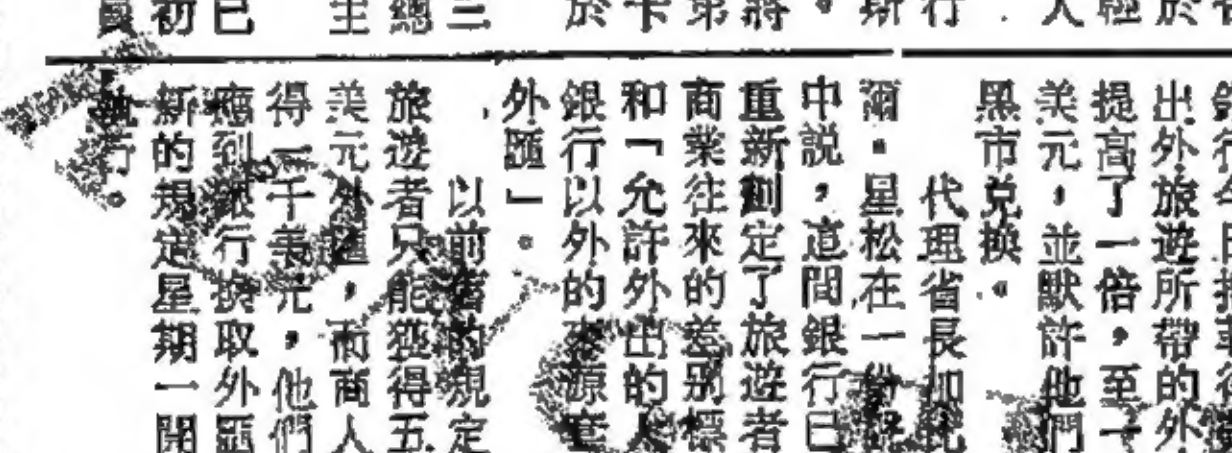 出外旅遊所帶的外
提高了一倍,至一
美元,並默許他們
黑市兌換。
代理省長加
爾.星松在一份
中説,這間銀行已
重新劃定了旅遊者
商業往來的差別標
和「允許外出的人
銀行以外的來源套
外匯」。
以前舊的規定
旅遊者只能獲得五
美元外匯,而商人
得一千美元,他們
應到銀行換取外匯
新的規定星期一開
執行。